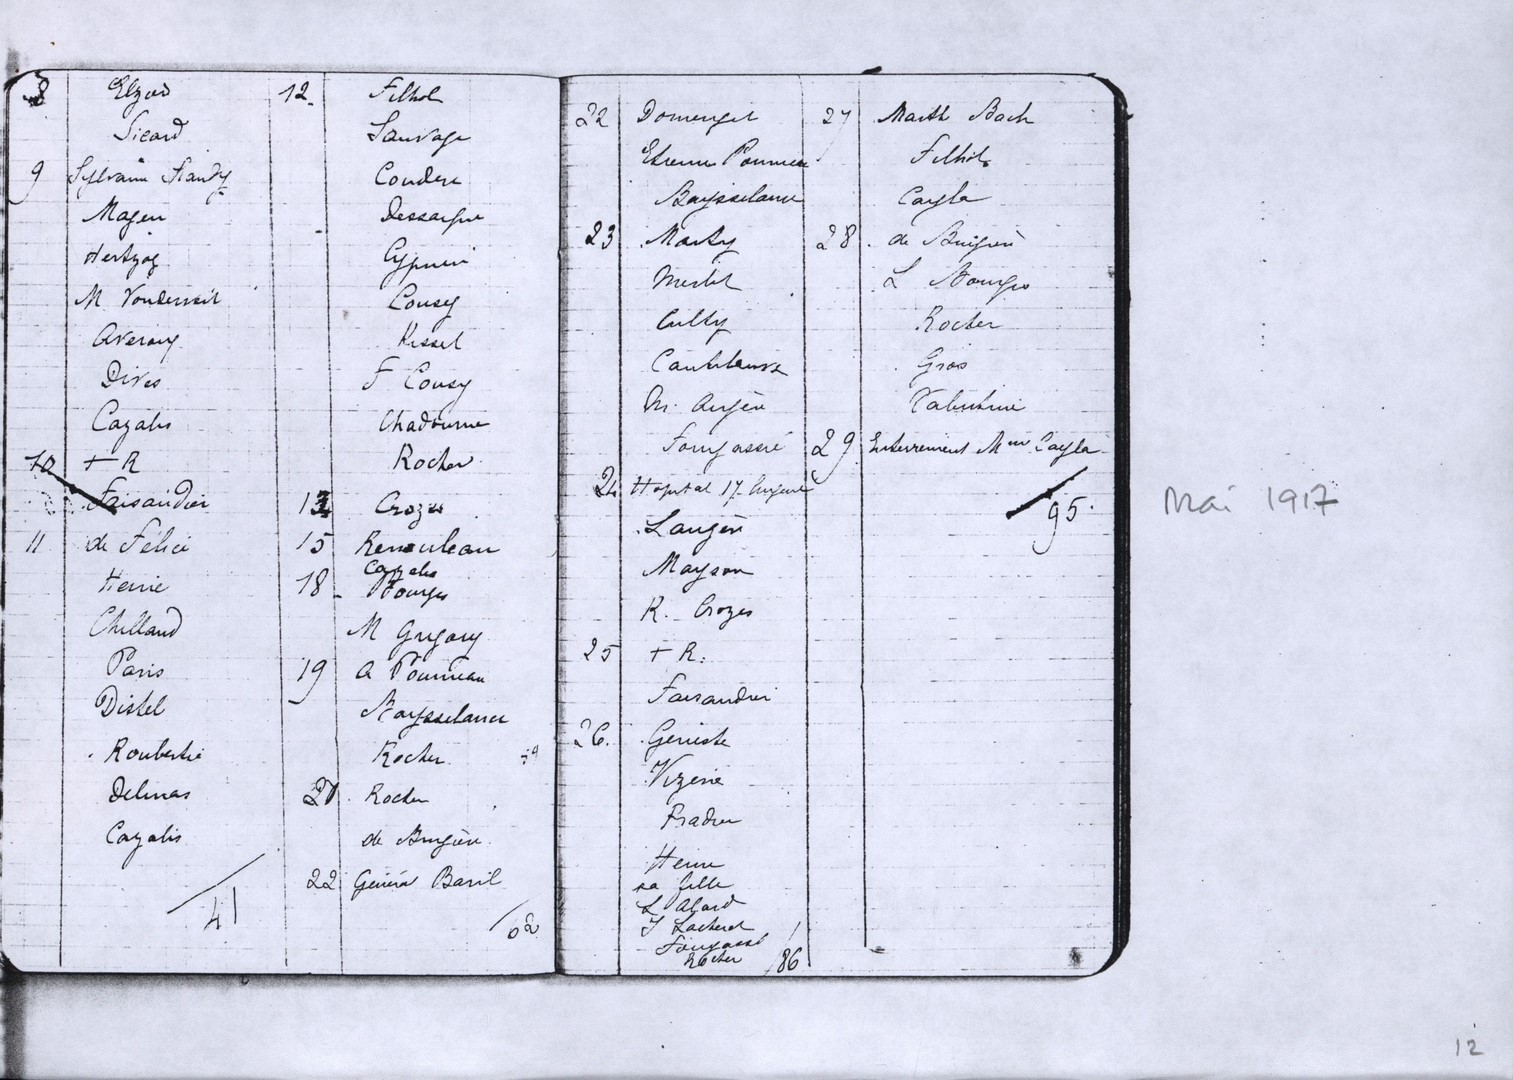 8 Elzod
Sicard
9 Sylvain Flandy
Magen
Hertzog
M Vonderveit
Averouy
Dives
Cazalis
10 + R
Faisandier
11 de Félice
Henric
Chilland
Paris
Distel
Roubertie
Delmas
Cazalis
41
12 Filhol
Sauvage
Couderc
Dessaigne
Cyprien
Cousy
Kissel
F Cousy
Chadourne
Rocher
13 Crozes
15 Renouleau
Cazalis
18 Bourges
M Grégory
19 A Poumeau
Baysselance
Rocher 59
20 Rocher
de Brugière
22 Général Baril
62
22 Domenget
Etienne Poumeau
Baysselance
23 Marty
Merlet
Culty
M. Augère
Fougassié
24 Hopital 17
Laugère
Mayson
R. Crozes
25 + R.
Faisandier
26. Geneste
Vizerie
Pradier
Henric
sa fille
L Abard
Fougassié
Rocher 86
27 Marth Bach
Filhol
Cayla
28. de Brugière
L Bourges
Rocher
Gros
Valentine
29. Enterrement Mme Cayla
95.
Mai 1917
12